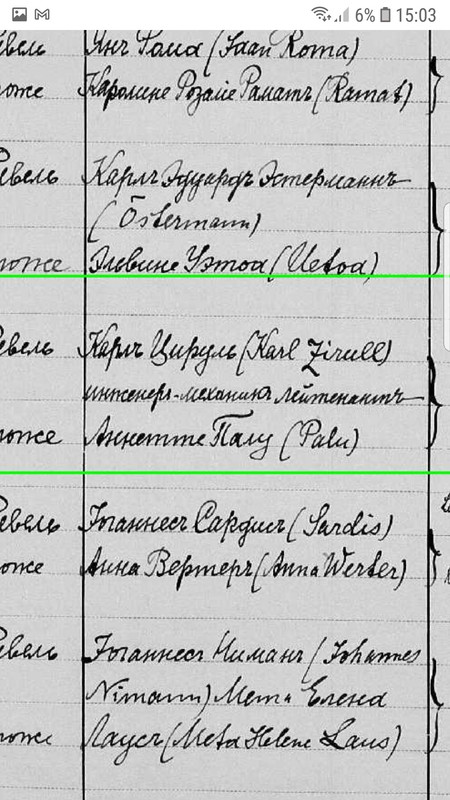 6% 15:03
Янъ Рома (Jaan Roma)
Каролине Розалiе Раматъ (Ramat)
Ревель Карлъ Эдуардъ Эстерманнъ
(Östermann)
Эльвине Уэтоа (Uetoa)
Ревель Карлъ Цируль (Karl Zirull)
инженеръ-механикъ лейтенантъ
Аннетте Палу (Palu)
Ревель Iоганнесъ Сардисъ (Sardis)
Анна Вертеръ (Anna Werter)
Iоганнесъ Ниманъ (Johannes
Nimann) Мета Елена
Лаусъ (Meta Helene Laus)